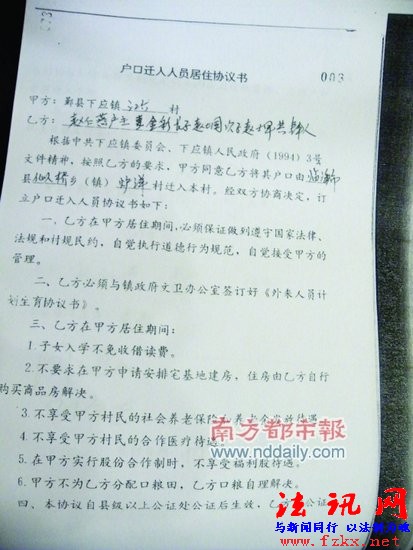 户口迁入人员居住协议书
003
甲方:鄞县下应镇 江六 村
乙方:
根据中共下应镇委员会、下应镇人民政府(1994)3号
文件精神,按照乙方的要求,甲方同意乙方将其户口由临海市
县仙人桥乡(镇)村迁入本村。经双方协商决定,订
立户口迁入人员协议书如下:
一、乙方在甲方居住期间,必须保证做到遵守国家法律、
法规和村规民约,自觉执行道德行为规范,自觉接受甲方的
管理。
二、乙方必须与镇政府文卫办公室签订好《外来人员计
划生育协议书》。
三、乙方在甲方居住期间:
1.子女入学不免收借读费。
2.不要求在甲方申请安排宅基地建房,住房由乙方自行
购买商品房解决。
3.不享受甲方村民的社会养老保险
4.不享受甲方村民的合作医疗待遇。
5.在甲方实行股份合作制时,不享受福利股待遇。
6.甲方不为乙方分配口粮田,乙方口粮自理解决。
四、本协议自县级以上公证处公证后生效,乙方公证
南方都市报
www.nddaily.com
法讯网
与新闻同行 以法制护魂
www.fzkx.net